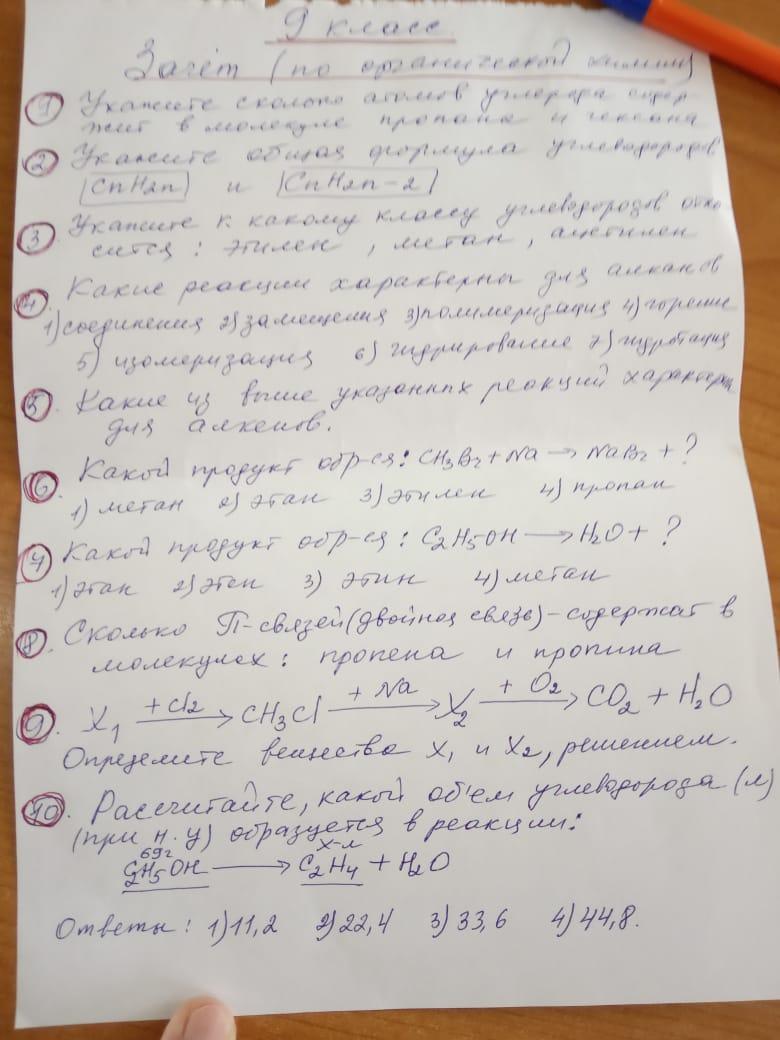 9 класс
Зачёт (по органической химии)
1 Укажите сколько атомов углерода содер-
жит в молекуле пропана и гексана
2 Укажите общая формула углеводородов
CnH2n и CnH2n-2
3. Укажите к какому классу углеводородов отно
сится: этилен, метан, ацетилен
4. Какие реакции характерны для алканов
1) соединения 2) замещения 3) полимеризация 4) горение
5) изомеризация 6) гидрирование 7) гидротация
5. Какие из выше указанных реакций характерны
для алкенов.
6. Какой продукт обр-ся: CH3Br + Na → NaBr + ?
1) метан 2) этан 3) этилен 4) пропан
7 Какой продукт обр-ся: C2H5OH → H2O + ?
1) этан 2) этен 3) этин 4) метан
8. Сколько П-связей (двойная связь) - содержат в
молекулех: пропена и пропина
9. X1 + Cl2 → CH3Cl + Na → X2 + O2 → CO2 + H2O
Определите вещества X1 и X2, решением.
10. Рассчитайте, какой объем углеводорода (л)
(при н.у) образуется в реакции:
69г х-л
C2H5OH → C2H4 + H2O
Ответы: 1) 11,2 2) 22,4 3) 33,6 4) 44,8.